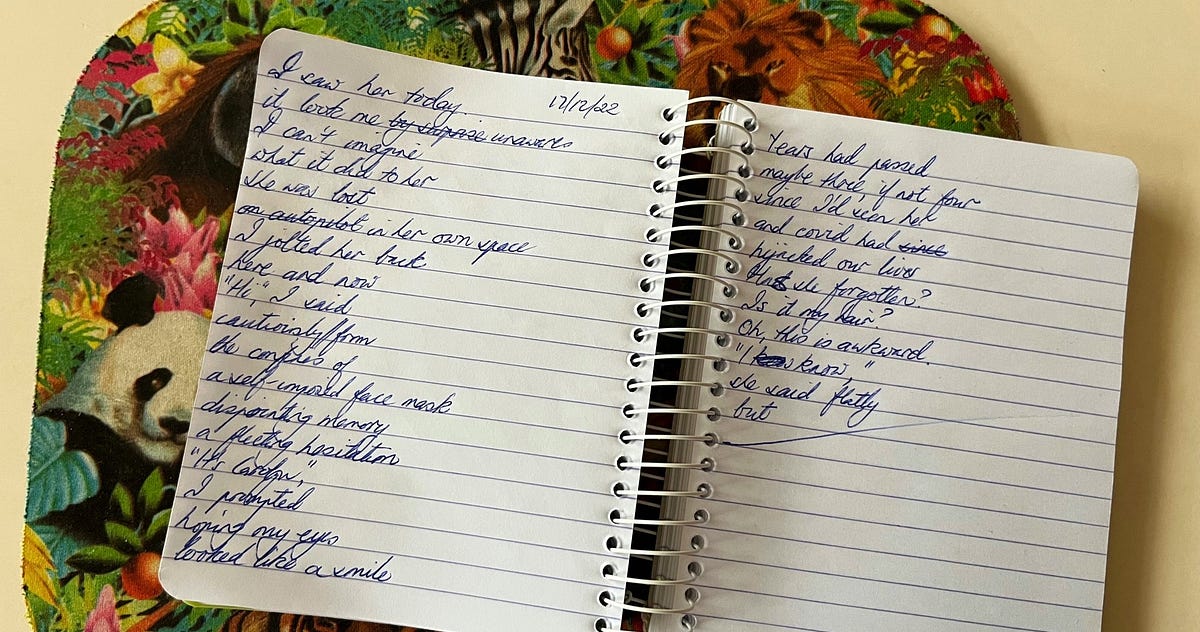 I saw her today
17/12/22
it took me by surprise unawares
I can't imagine
what it did to her
She was lost
on autopilot in her own space
I jolted her back
here and now
"Hi," I said
cautiously from
the confines of
a self-imposed face mask
disjointing memory
a fleeting hesitation
"It's Carolyn,"
I prompted
hoping my eyes
looked like a smile
Years had passed
maybe three, if not four
since I'd seen her
and covid had since
hijacked our lives
Has she forgotten?
Is it my hair?
Oh, this is awkward.
"I know"
she said flatly
but